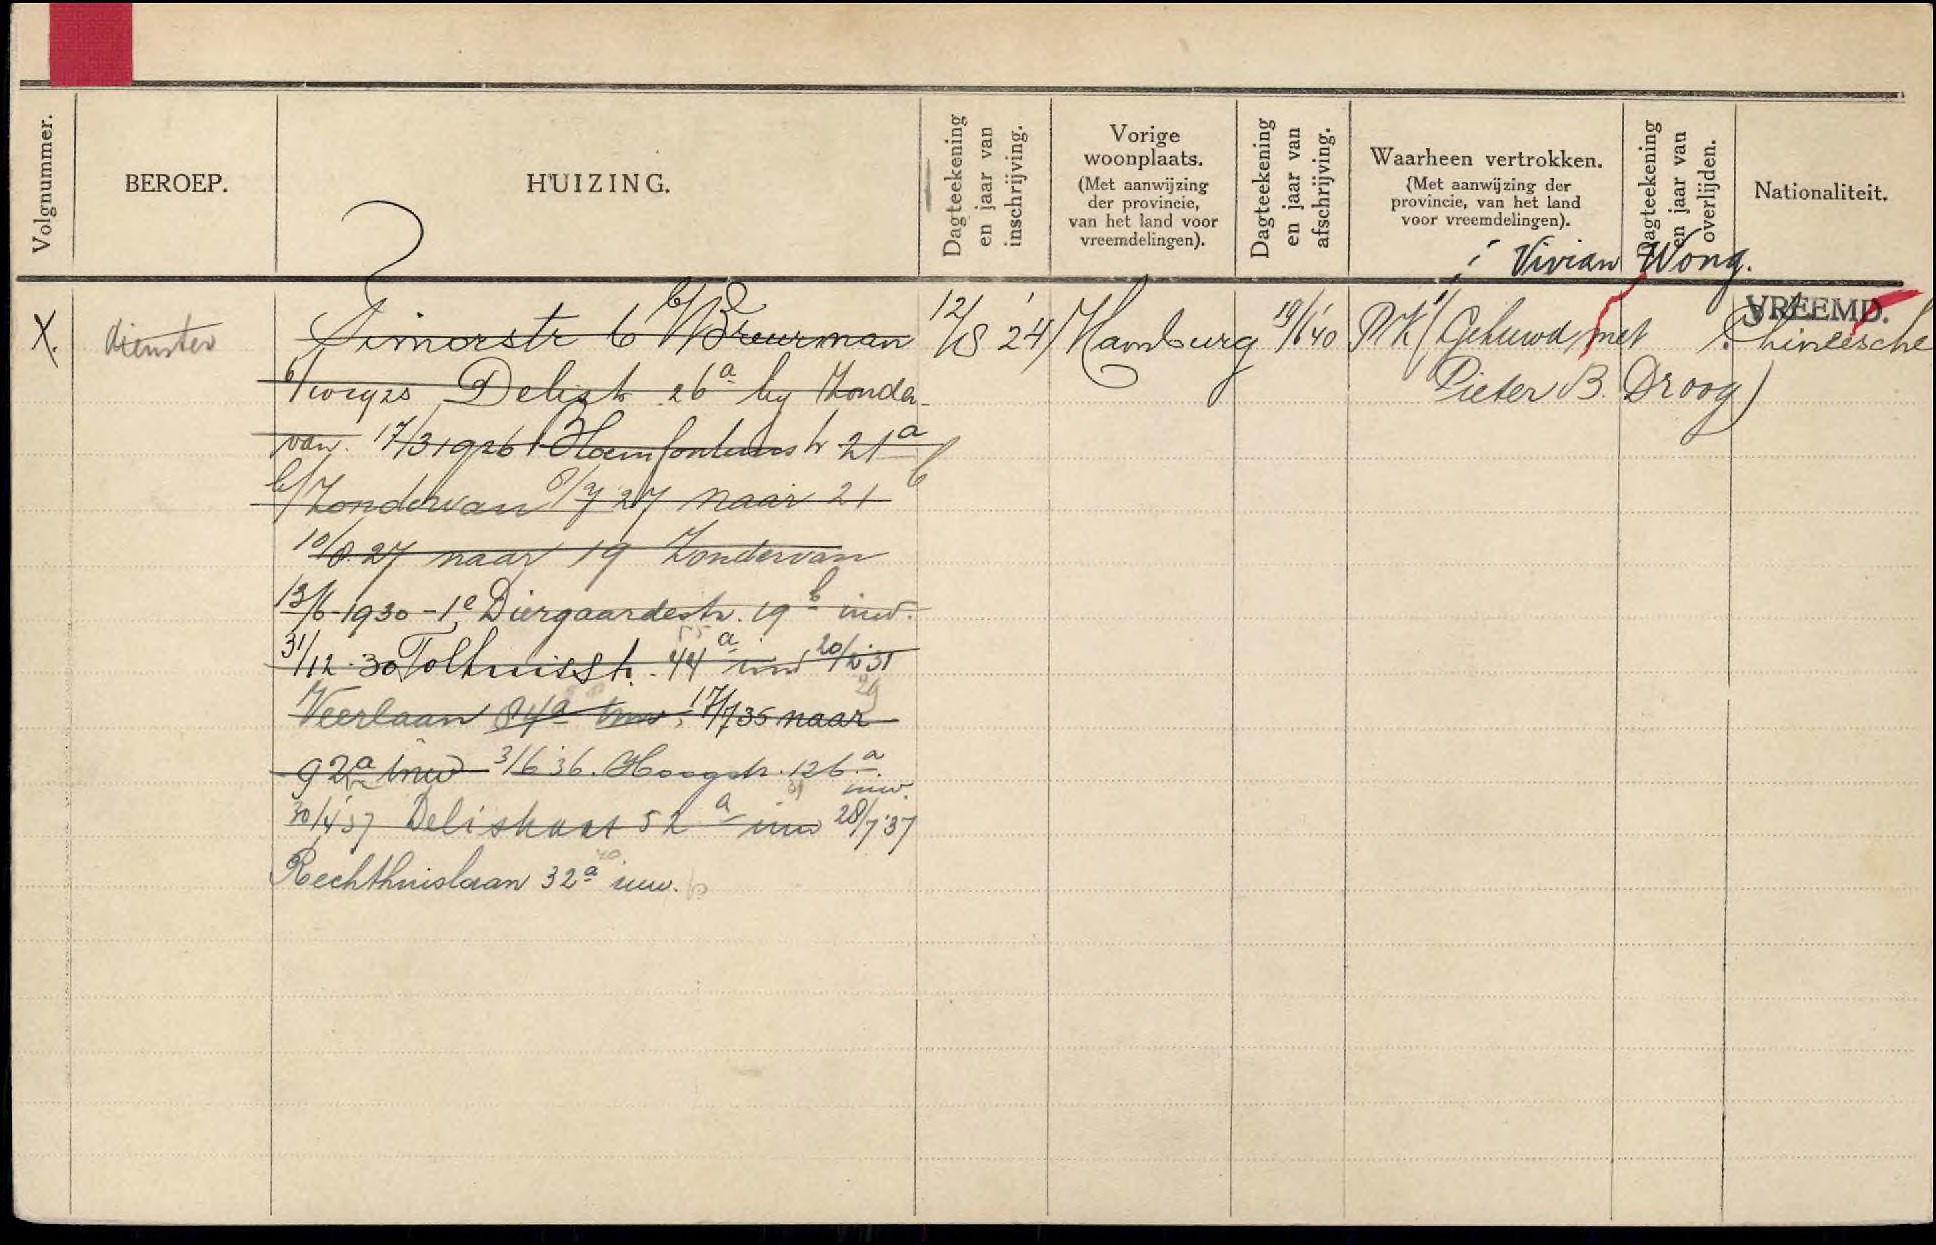 Volgnummer.
BEROEP.
HUIZING.
Dagteekening
en jaar van
inschrijving.
Vorige
woonplaats.
(Met aanwijzing
der provincie,
van het land voor
vreemdelingen).
Dagteekening
en jaar van
afschrijving.
Waarheen vertrokken.
(Met aanwijzing der
provincie, van het land
voor vreemdelingen).
Dagteekening
en jaar van
overlijden.
Nationaliteit.
Vivian Wong.
VREEMD.
X.
Timorstr 6 b/ Breurman
12/8 '24
Hamburg
19/1'40
PK (Gehuwd met
Chineesche
Delistr 26a by Zonder-
Pieter B. Droog)
van. 17/3 1926 Bloemfonteinstr 21a
b/ Zondervan 8/7 27 naar 21 b
10/8 27 naar 19 Zondervan
13/6-1930-1e Diergaardestr. 19b inw.
31/12-30 Tolhuisstr. 44a inw 20/2'31
Veerlaan 84a inw, 17/7 35 naar
92a inw 3/6'36. Hoogstr. 126a.
inw.
30/4'37 Delistraat 52a inw 28/7'37
Rechthuislaan 32a inw.